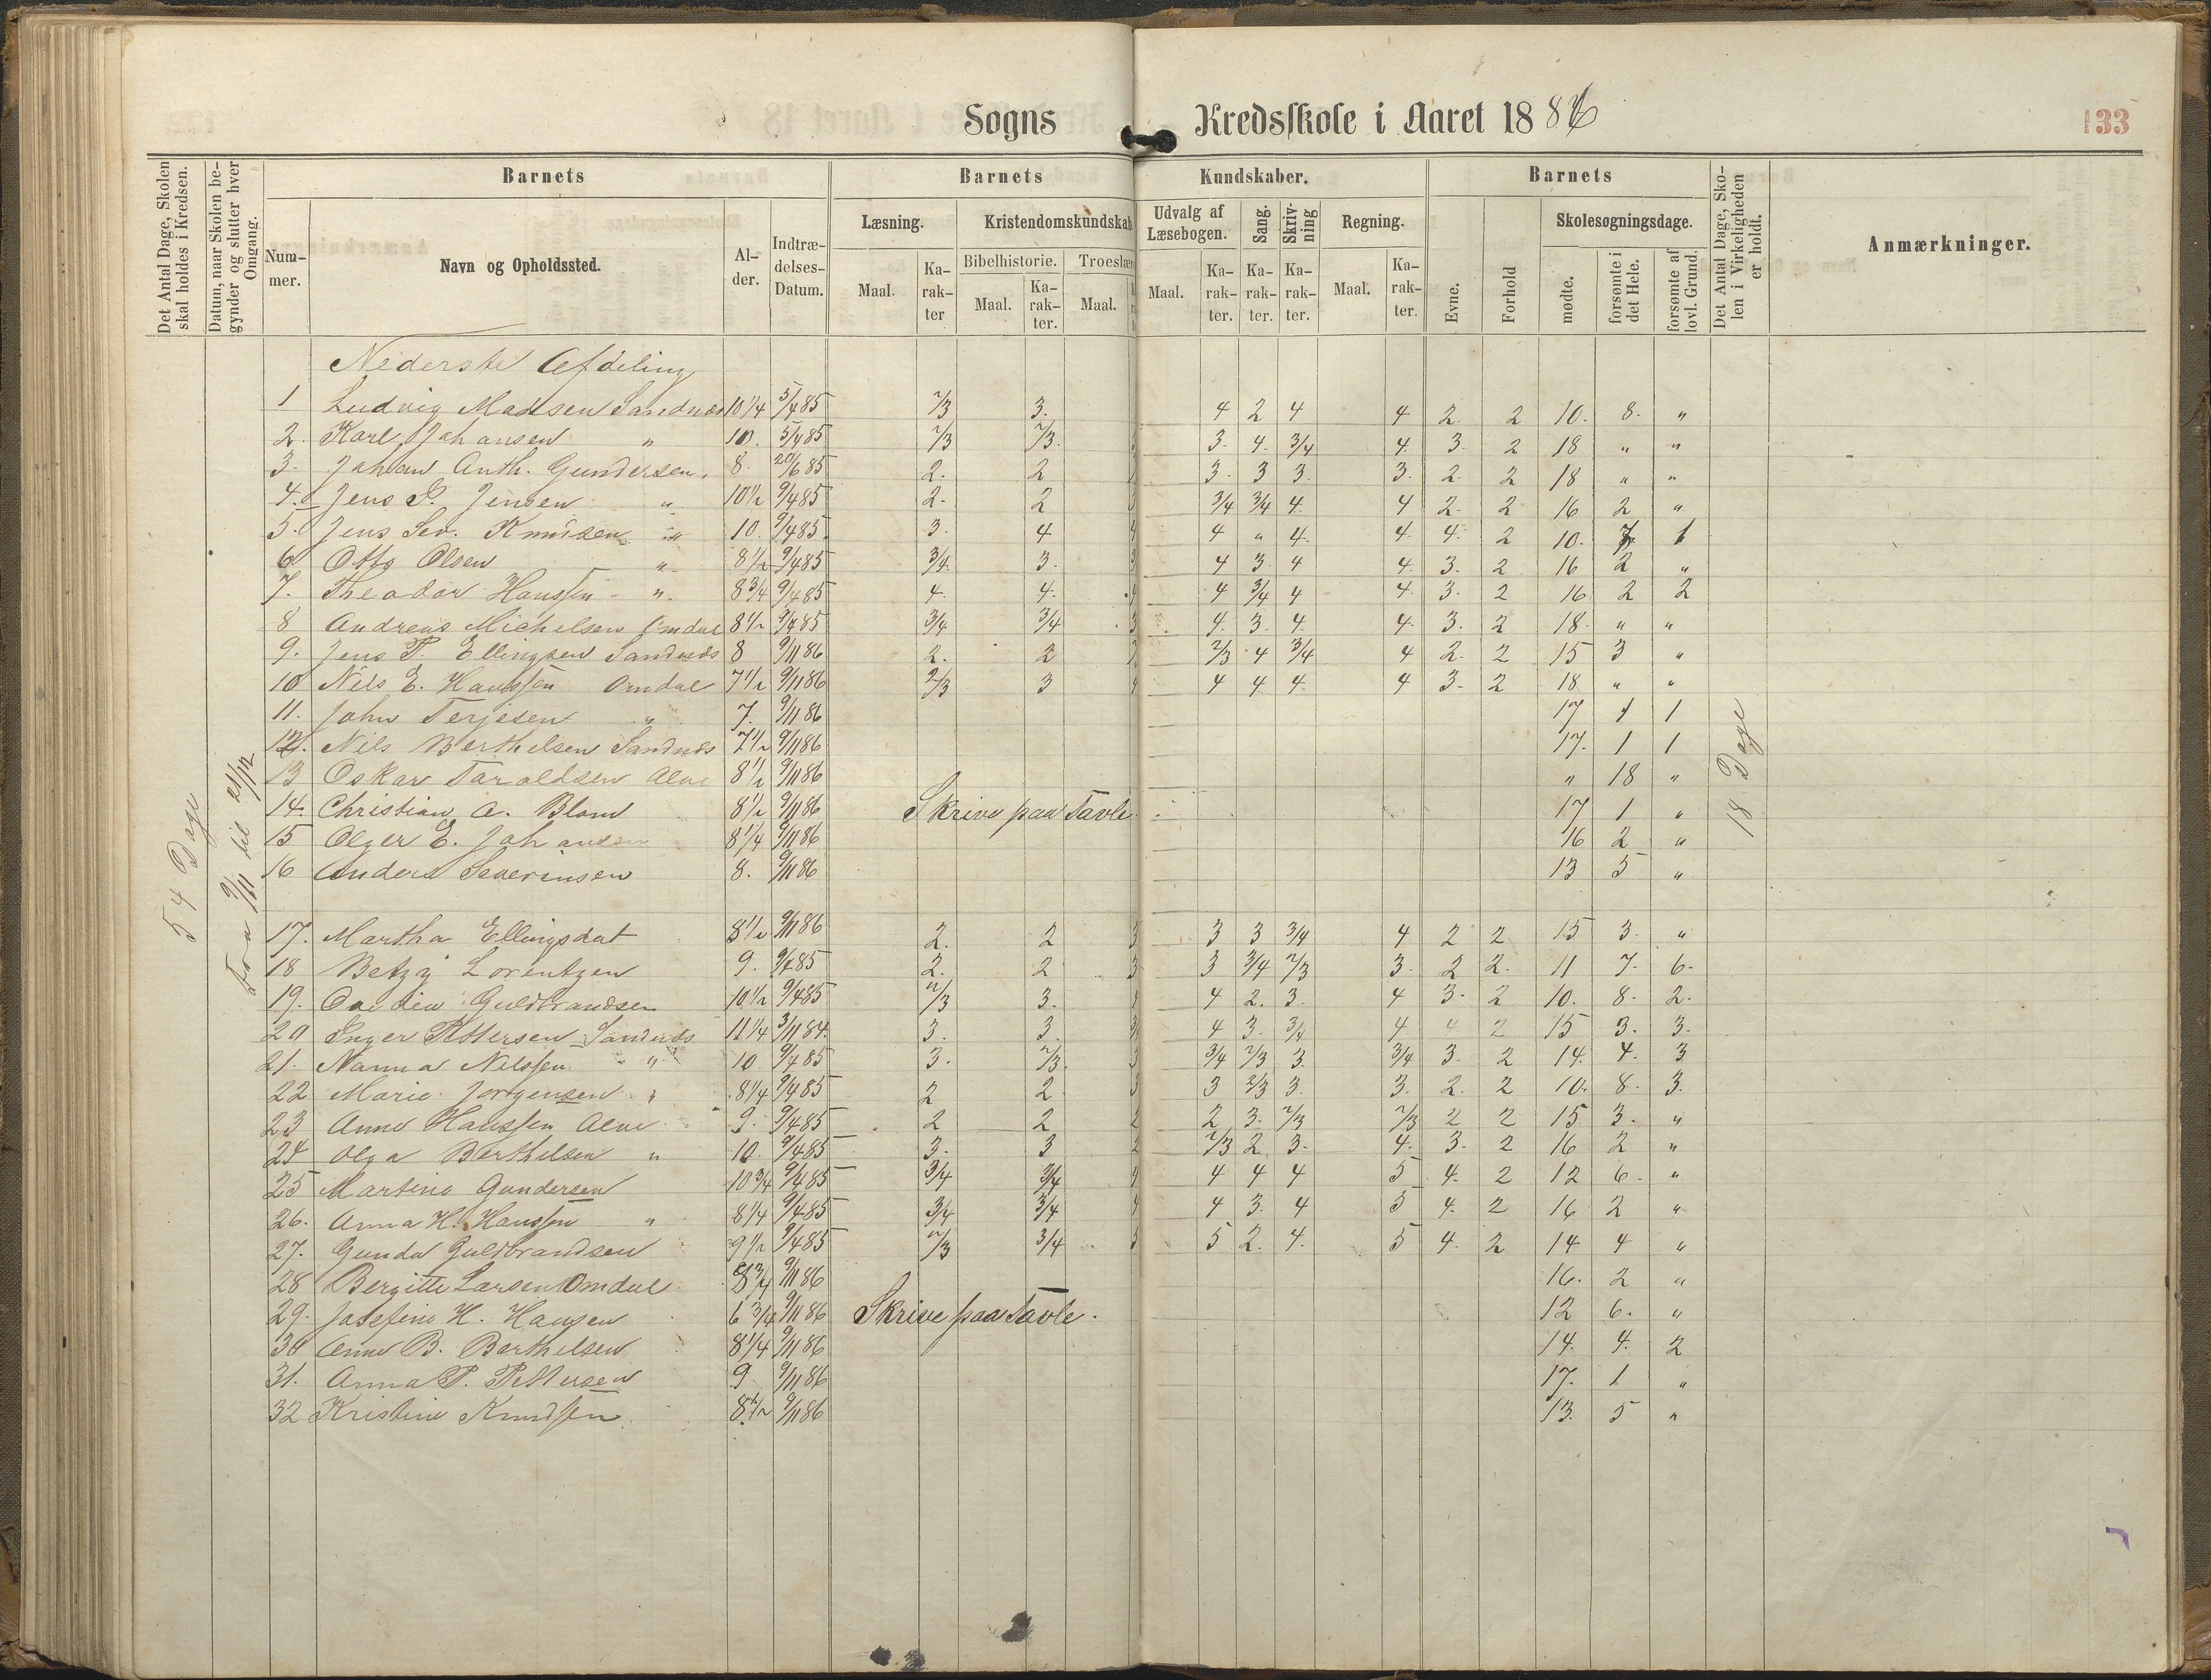 Sogns Kredsskole i Aaret 1886 133
Det Antal Dage, Skolen skal holdes i Kredsen.
Datum, naar Skolen begynder og slutter hver Omgang.
Barnets
Nummer.
Navn og Opholdssted.
Alder.
Indtrædelses-Datum.
Barnets Kundskaber.
Læsning. Maal. Karakter
Kristendomskundskab
Bibelhistorie. Maal. Karakter.
Troeslæ Maal.
Udvalg af Læsebogen. Maal. Karakter.
Sang. Karakter.
Skrivning Karakter.
Regning. Maal. Karakter.
Barnets
Evne.
Forhold
Skolesøgningsdage.
mødte.
forsømte i det Hele.
forsømte af lovl. Grund.
Det Antal Dage, Skolen i Virkeligheden er holdt.
Anmærkninger.
54 Dage
Fra 9/11 til 21/12
18 Dage
Nederste Afdeling
1 Ludvig Madsen Sandnæs 10 1/4 5/4 85 2/3 3. 4 2 4 4 2. 2 10. 8. "
2. Karl Johansen " 10. 5/4 85 2/3 2/3. 3. 4. 3/4 4. 3. 2 18 " "
3. Johan Anth. Gundersen. 8. 20/6 85 2. 2 3. 3 3. 3. 2. 2 18 " "
4. Jens P. Jensen " 10 1/2 9/4 85 2. 2 3/4 3/4 4. 4 2. 2 16 2 "
5. Jens Sev. Knudsen " 10. 9/4 85 3. 4 4 4 " 4. 4. 4. 2 10. 1
6 Otto Olsen " 8 1/2 9/4 85 3/4. 3. 3 4 3. 4 4. 3. 2 16 2 "
7. Theodor Hanssen " 8 3/4 9/4 85 4. 4. 4 4 3/4 4 4. 3. 2 16 2 2
8 Andreas Michelsen Omdal 8 1/2 9/4 85 3/4 3/4 3 4. 3. 4. 4. 3. 2 18. " "
9. Jens T. Ellingsen Sandnæs 8 9/11 86 2. 2 2/3 4 3/4 4 2. 2 15 3 "
10 Nils E. Hanssen Omdal 7 1/2 9/11 86 2/3 3 4 4 4 4. 4 3. 2 18 " "
11. John Terjesen " 7. 9/11 86 17 1 1
12. Nils Berthelsen Sandnæs 7 1/2 9/11 86 17. 1 1
13 Oskar Taraldsen Alve 8 1/2 9/11 86 " 18 "
14. Christian A. Blom 8 1/2 9/11 86 Skrive paa Tavle 17 1 "
15 Olger E. Johansen 8 1/4 9/11 86 16 2 "
16 Anders Severinsen 8. 9/11 86 13 5 "
17. Martha Ellingsdat 8 1/2 9/11 86 2. 2 3 3 3 3/4 4 2 2 15 3 "
18 Betzy Lorentzen 9. 9/4 85 2. 2 3 3 3/4 2/3 3. 2 2. 11 7. 6.
19. Guldbrandsen 10 1/2 9/4 85 2/3 3. 4 4 2. 3. 4 3. 2 10. 8. 2.
20 Inger Pettersen Sandnæs 11 1/4 3/11 84. 3. 3. 3 4 3. 3/4 4. 4 2 15 3. 3.
21. Nanna Nilssen " 10 9/4 85 3. 2/3. 3 3/4 2/3 3. 3/4 3. 2 14. 4. 3
22 Marie Jørgensen " 8 1/4 9/4 85 2 2 3 3 2/3 3. 3. 2. 2 10. 8. 3.
23 Anne Hanssen Alve 9. 9/4 85 2 2 2 2 3. 2/3 2/3 2 2 15. 3. "
24 Olga Berthelsen " 10. 9/4 85 3. 3 2 2/3 2 3. 4. 3. 2 16 2 "
25 Martine Gundersen 10 3/4 9/4 85 3/4 3/4 4 4 4 4 5 4. 2 12 6. "
26. Anna H. Hanssen " 8 1/4 9/4 85 3/4 3/4 4 4 3. 4 5 4. 2 16 2 "
27. Gunda Guldbrandsen 9 1/2 9/4 85 2/3 3/4 3 5 2. 4. 5 4. 2 14 4 "
28 Bergitte Larsen Omdal 8 3/4 9/11 86 16. 2 "
29. Josefine H. Hansen 6 3/4 9/11 86 Skrive paa Tavle. 12 6. "
30 Anne B. Berthelsen 8 1/4 9/11 86 14. 4. 2
31. Anna P. Pettersen 9 9/11 86 17. 1 "
32 Kristine Knudsen 8 1/2 9/11 86 13. 5 "